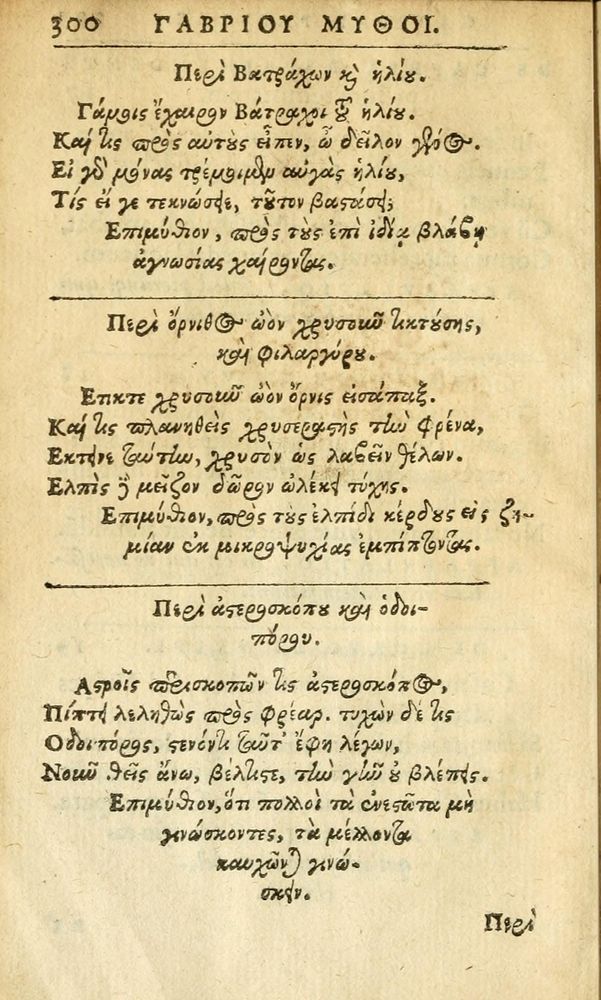 300 ΓΑΒΡΙΟΥ ΜΥΘΟΙ.
Περὶ Βατράχων καὶ ἡλίου.
Γάμοις ἔχαιρον Βάτραχοι τοῦ ἡλίου.
Καί τις πρὸς αὐτοὺς εἶπεν, ὦ δεῖλον γένος.
Εἰ γὰρ μόνας τρέμοιμεν αὐγὰς ἡλίου,
Τίς εἴ γε τεκνώσειε, τοῦτον βαστάσει;
Επιμύθιον, πρὸς τοὺς ἐπὶ ἰδίᾳ βλάβῃ
ἀγνωσίας χαίροντας.
Περὶ ὄρνιθος ὠὸν χρυσοῦν τικτούσης,
καὶ φιλαργύρου.
Ετικτε χρυσοῦν ὠὸν ὄρνις εἰσάπαξ.
Καί τις πλανηθεὶς χρυσεραστὴς τὴν φρένα,
Εκτεινε ταύτην, χρυσὸν ὡς λαβεῖν θέλων.
Ελπὶς δὲ μεῖζον δῶρον ὠλέκει τύχης.
Επιμύθιον, πρὸς τοὺς ἐλπίδι κέρδους εἰς ζη-
μίαν ἐκ μικροψυχίας ἐμπίπτοντας.
Περὶ ἀστεροσκόπου καὶ ὁδοι-
πόρου.
Αστροις περισκοπῶν τις ἀστεροσκόπος,
Πίπτει λεληθὼς πρὸς φρέαρ. τυχὼν δέ τις
Οδοιπόρος, στένοντι ταῦτ' ἔφη λέγων,
Νοῦν θεὶς ἄνω, βέλτιστε, τὴν γῆν οὐ βλέπεις.
Επιμύθιον, ὅτι πολλοὶ τὰ ἐνεστῶτα μὴ
γινώσκοντες, τὰ μέλλοντα
καυχῶνται γινώ-
σκειν.
Περὶ